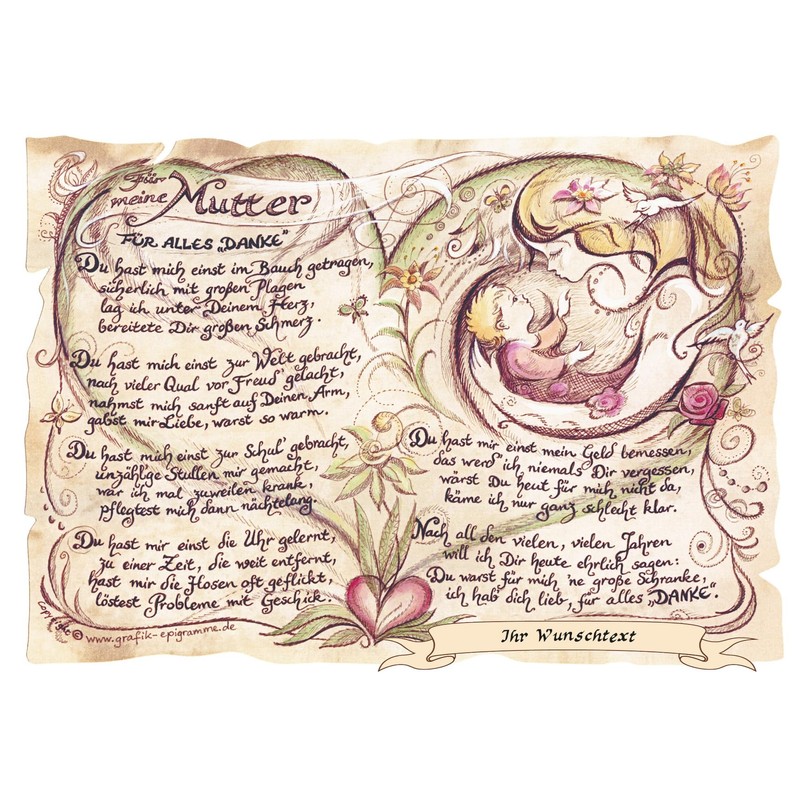 Für
meine Mutter
FÜR ALLES „DANKE"
Du hast mich einst im Bauch getragen,
sicherlich mit großen Plagen
lag ich unter Deinem Herz,
bereitete Dir großen Schmerz.
Du hast mich einst zur Welt gebracht,
nach vieler Qual vor Freud' gelacht,
nahmst mich sanft auf Deinen Arm,
gabst mir Liebe, warst so warm.
Du hast mich einst zur Schul' gebracht,
unzählige Stullen mir gemacht,
war ich mal zuweilen krank,
pflegtest mich dann nächtelang.
Du hast mir einst die Uhr gelernt,
zu einer Zeit, die weit entfernt,
hast mir die Hosen oft geflickt,
löstest Probleme mit Geschick.
Du hast mir einst mein Geld bemessen,
das werd' ich niemals Dir vergessen,
wärst Du heut für mich nicht da,
käme ich nur ganz schlecht klar.
Nach all den vielen, vielen Jahren
will ich Dir heute ehrlich sagen:
Du warst für mich 'ne große Schranke,
ich hab' dich lieb, für alles „DANKE".
Copyright © www.grafik-epigramme.de
Ihr Wunschtext